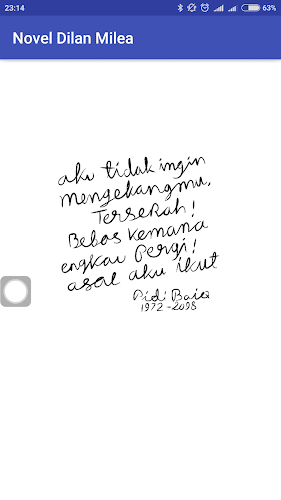 23:14
63%
Novel Dilan Milea
aku tidak ingin
mengekangmu.
Terserah!
Bebas kemana
engkau pergi!
asal aku ikut
Pidi Baiq
1972-2098